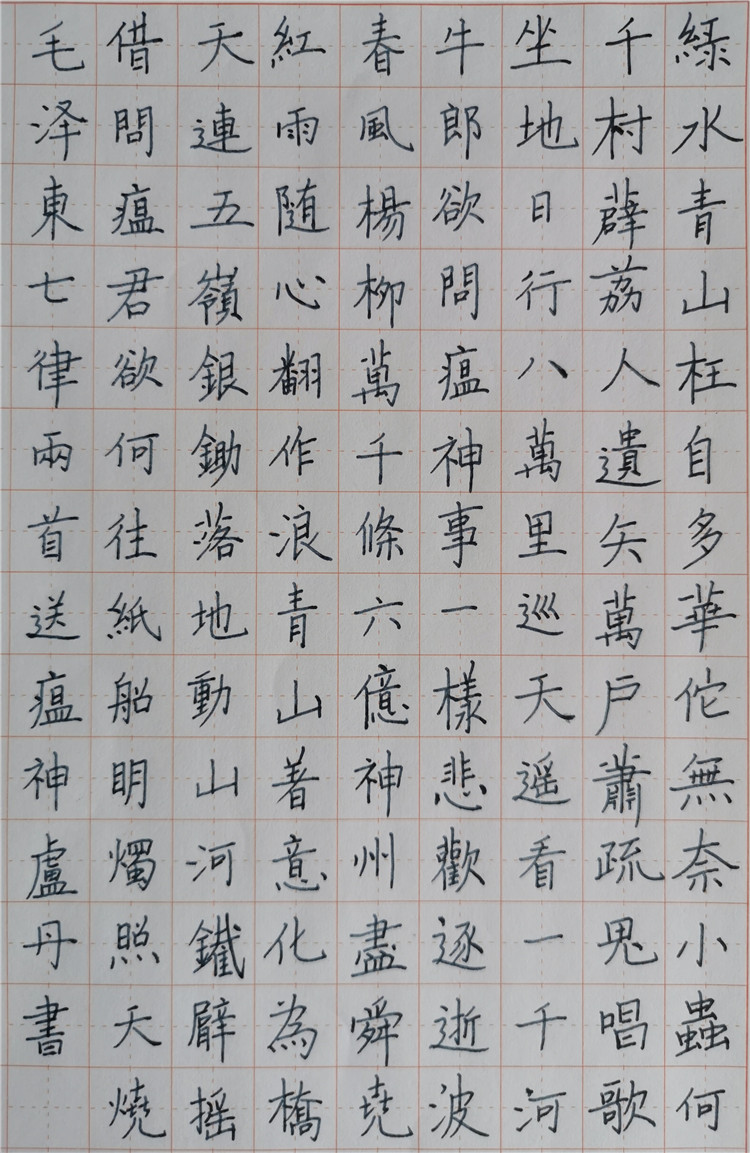 綠水青山枉自多華佗無奈小蟲何
千村薜荔人遺矢萬户蕭疏鬼唱歌
坐地日行八萬里巡天遥看一千河
牛郎欲問瘟神事一樣悲歡逐逝波
春風楊柳萬千條六億神州盡舜堯
紅雨随心翻作浪青山著意化為橋
天連五嶺銀鋤落地動山河鐵臂摇
借問瘟君欲何往紙船明燭照天燒
毛泽東七律兩首送瘟神盧丹書